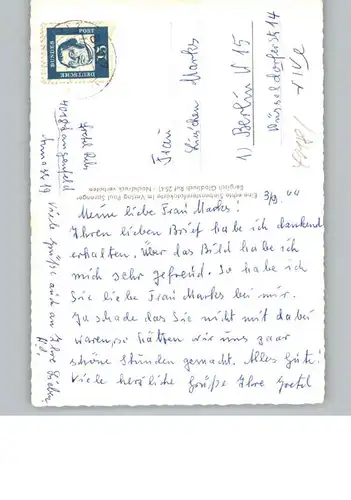 DEUTSCHE
BUNDES
POST
15
Frau
Lieschen Markes
1) Berlin W 15
Düsseldorferstr 14
Gretel
4018 Langenfeld
19
Eine echte Siebensternfotokarte im Verlag Paul Springer
Berg.Gladbach Ruf 2541 - Nachdruck verboten
3/9. 64
Meine liebe Frau Markes!
Ihren lieben Brief habe ich dankend
erhalten. Über das Bild habe ich
mich sehr gefreud. So habe ich
Sie liebe Frau Markes bei mir.
Ja schade das Sie nicht mit dabei
waren, so hätten wir uns paar
schöne Stunden gemacht. Alles Gute!
Viele herzliche Grüße Ihre Gretel
Viele Grüße auch an Ihre Lieben